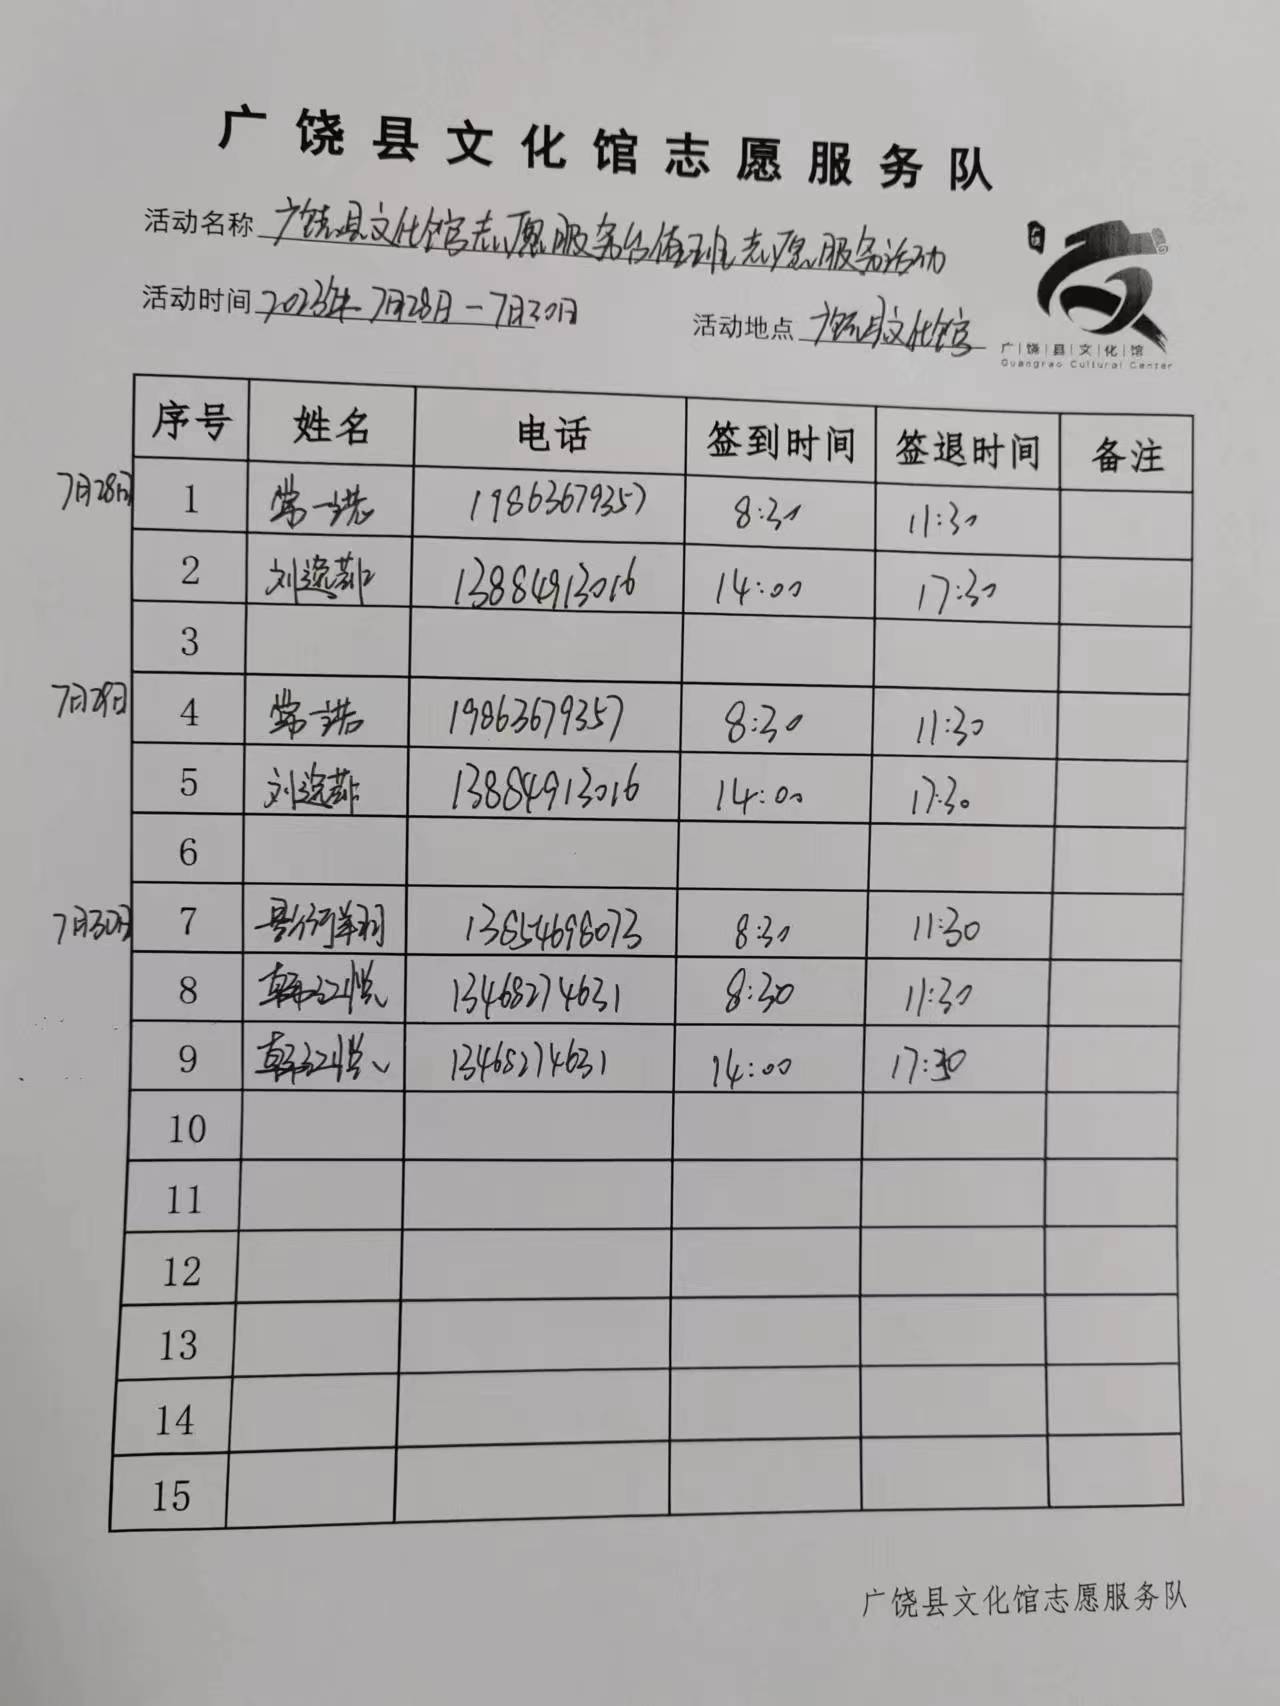 广饶县文化馆志愿服务队
活动名称 广饶县文化馆志愿服务台值班志愿服务活动
活动时间 2023年7月28日-7月30日 活动地点 广饶县文化馆
广|饶|县|文|化|馆
Guangrao Cultural Center
序号 姓名 电话 签到时间 签退时间 备注
7月28日 1 常一诺 19863679357 8:30 11:30
2 刘逸菲 13884913016 14:00 17:30
3
7月29日 4 常一诺 19863679357 8:30 11:30
5 刘逸菲 13884913016 14:00 17:30
6
7月30日 7 13854698073 8:30 11:30
8 韩江悦 13468274631 8:30 11:30
9 韩江悦 13468274631 14:00 17:30
10
11
12
13
14
15
广饶县文化馆志愿服务队